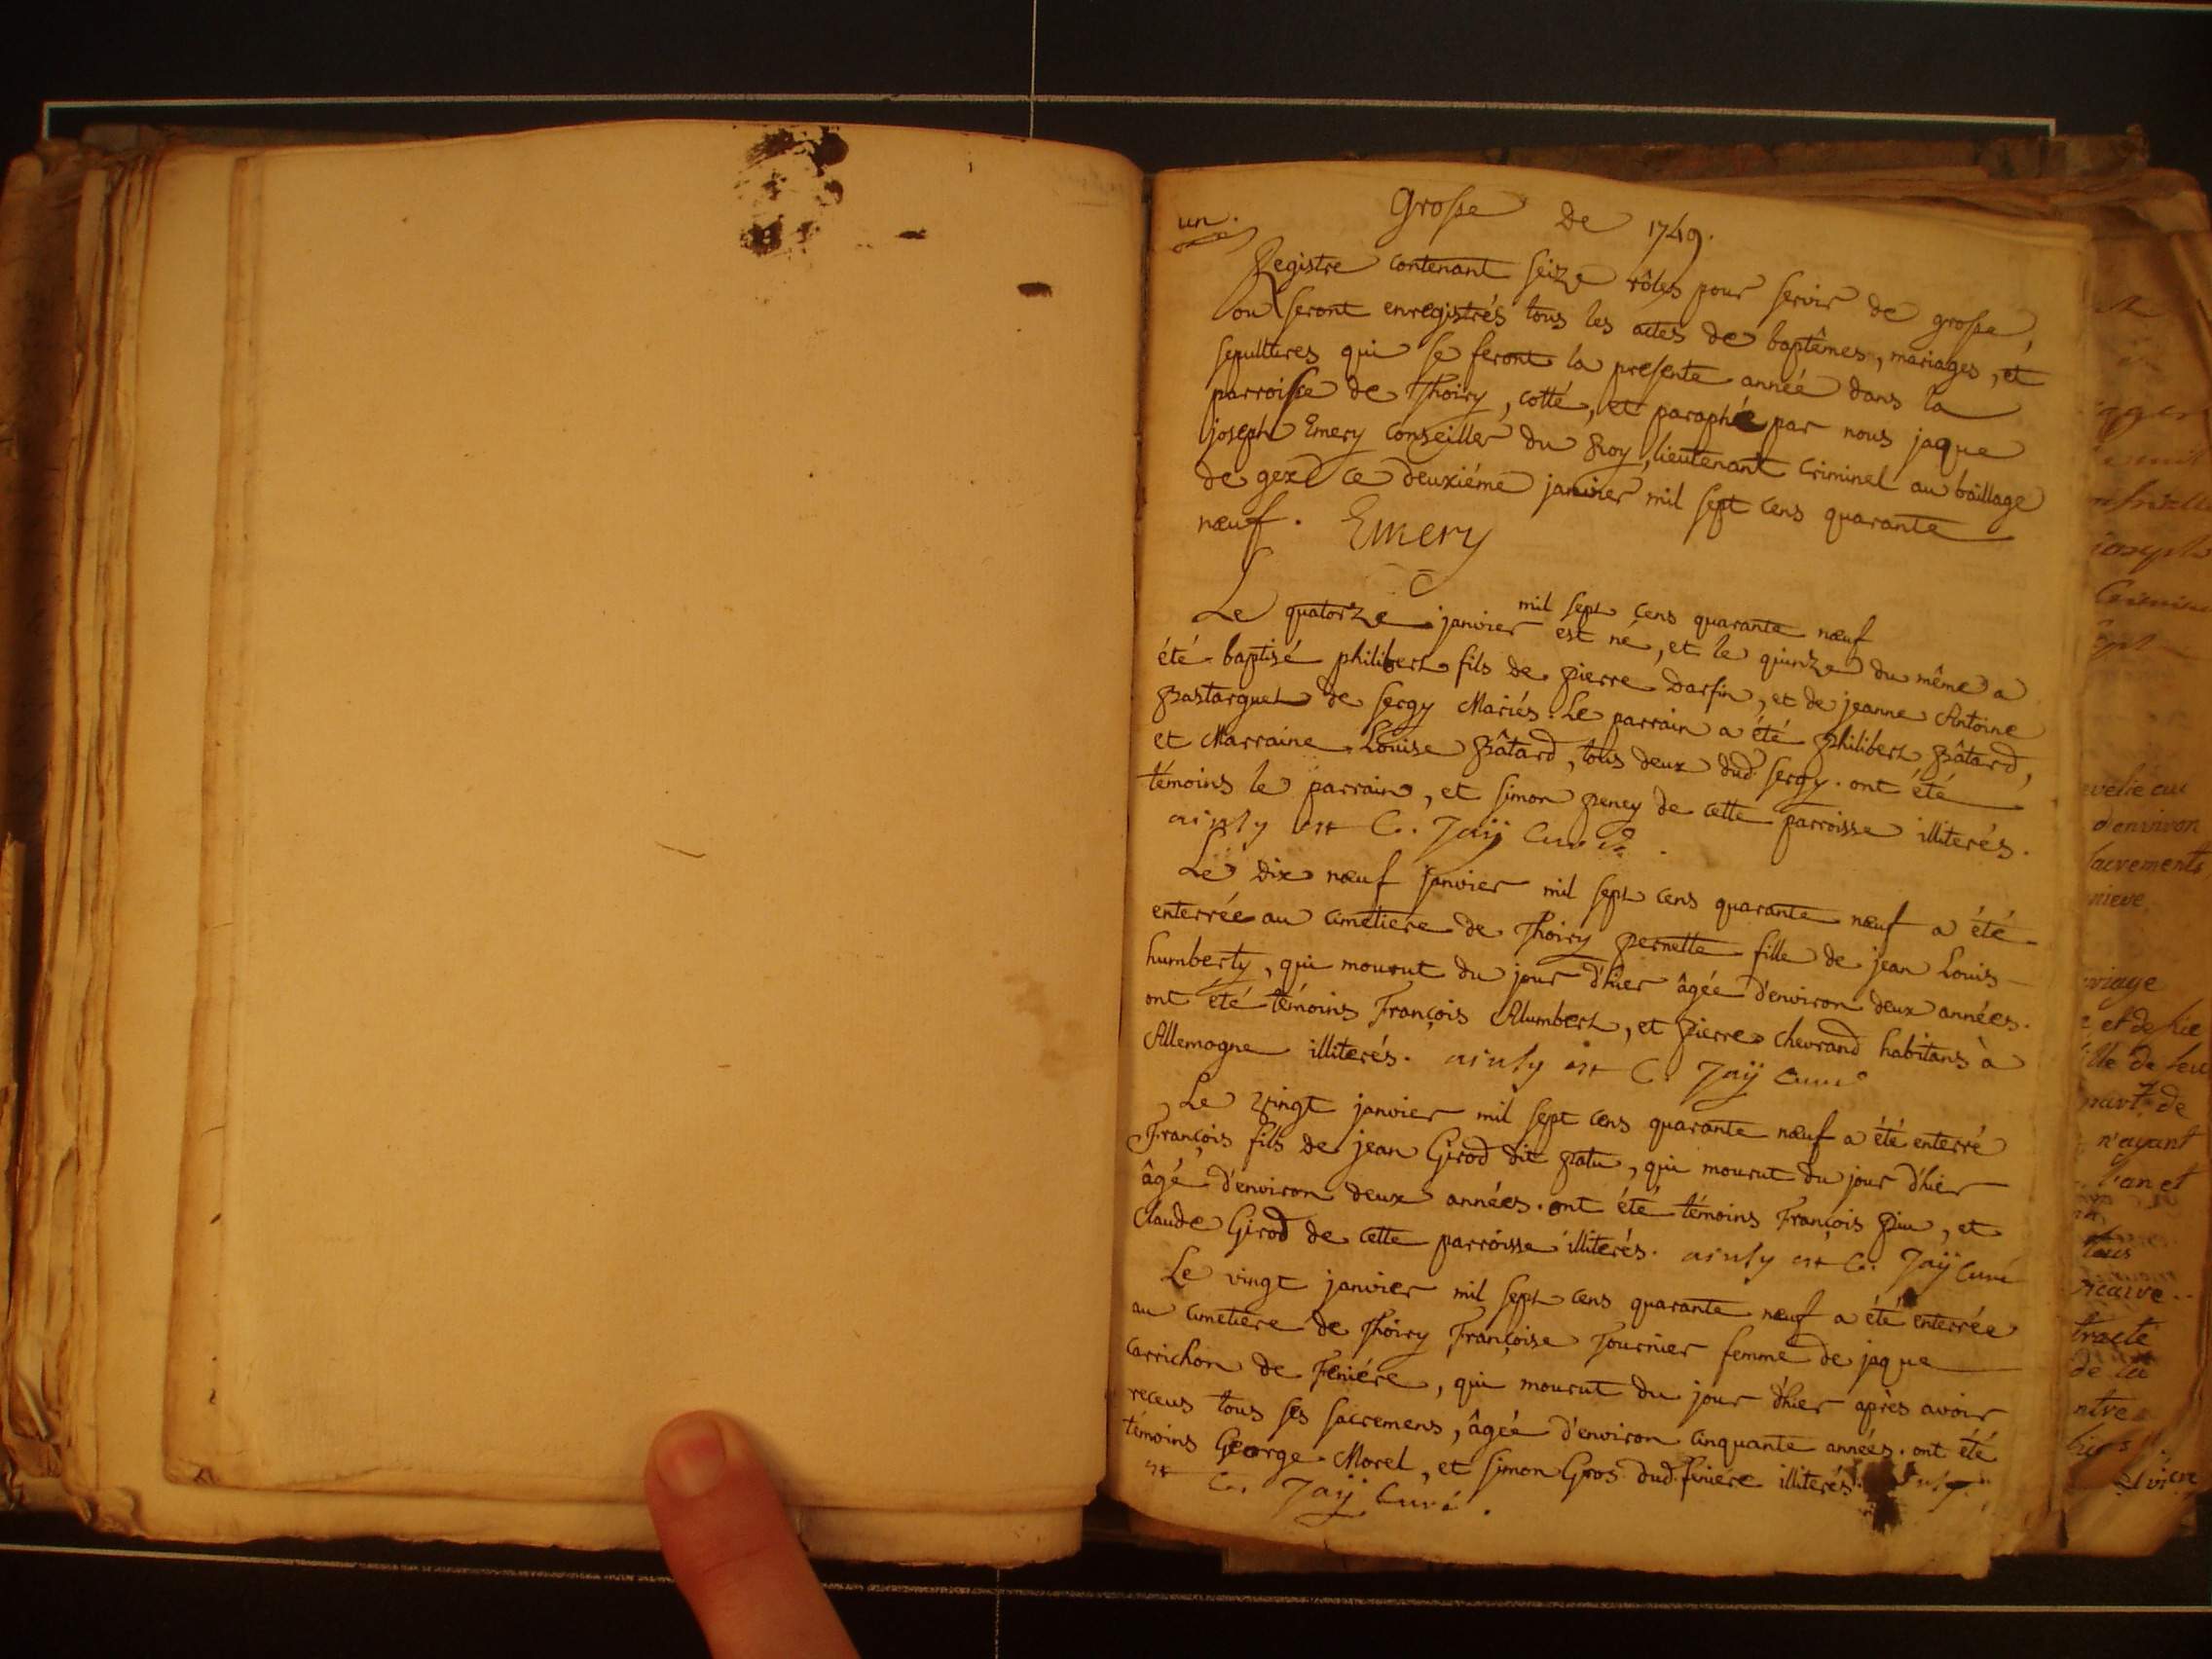 un.
Grosse de 1749.
Registre contenant seize rôles pour servir de grosse,
ou seront enregistrés tous les actes de baptêmes, mariages, et
sepultures qui se feront la presente année dans la
parroisse de Thoiry, cotté, et paraphé par nous jaque
joseph Emery conseiller du Roy, lieutenant criminel au bâillage
de gex ce deuxiéme janvier mil sept cens quarante
nœuf. Emery
mil sept cens quarante nœuf
Le quatorze janvier est né, et le quinze du même a
été baptisé philibert fils de pierre Darfin, et de jeanne Antoine
Bastarguet de sergy Mariés. Le parrain a été philibert Bâtard,
et Marraine Louise Bâtard, tous deux dud. sergy. ont été
témoins le parrain, et simon peney de cette parroisse illiterés.
ainsy est C. Jaÿ Curé.
Le dix nœuf janvier mil sept cens quarante nœuf a été
enterrée au cimetiere de Thoiry pernette fille de jean Louis
humberty, qui mourut du jour d'hier âgée d'environ deux années.
ont été témoins François Alumbert, et pierre chevrand habitans à
Allemogne illiterés. ainsy est C. Jaÿ Curé
Le vingt janvier mil sept cens quarante nœuf a été enterré
François fils de jean Girod dit patu, qui mourut du jour d'hier
âgé d'environ deux années. ont été témoins François piu, et
Claude Girod de cette parroisse illiterés. ainsy est C. Jaÿ Curé
Le vingt janvier mil sept cens quarante nœuf a été enterrée
au cimetiere de Thoiry Françoise Fournier femme de jaque
Carrichon de Feniére, qui mourut du jour d'hier après avoir
receus tous ses sacremens, âgée d'environ cinquante années. ont été
témoins George Morel, et simon Gros dud. feniére illiterés.
est C. Jaÿ Curé.
d'environ
sacrements
n'ayant